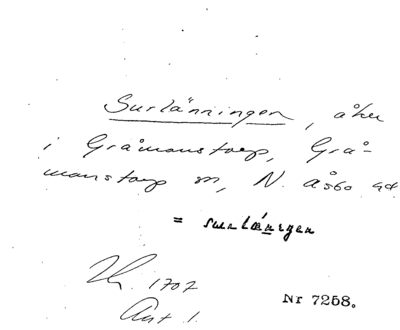 Surlänningen, åker
i Gråmanstorp, Grå-
manstorp sn, N. Åsbo hd
= surlǽnigen
1707
Akt 1.
Nr 7258.